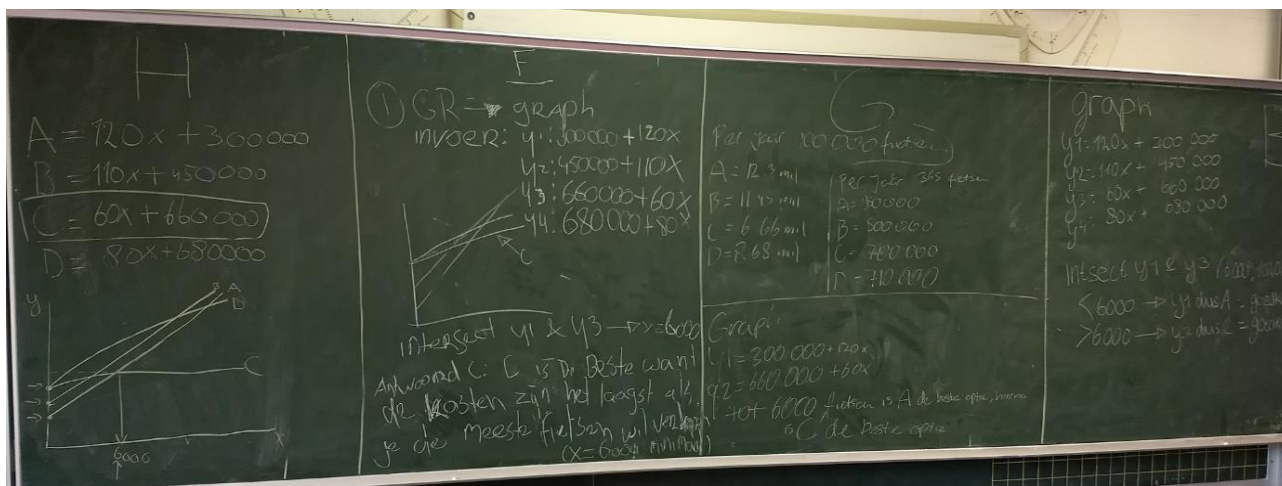 H
A = 120x + 300000
B = 110x + 450000
C = 60x + 660000
D = 80x + 680000
y
A
D
C
6000
x
F
① GR → graph
invoer: y1: 300000 + 120x
y2: 450000 + 110x
y3: 660000 + 60x
y4: 680000 + 80x
C
intersect y1 & y3 → x = 6000
Antwoord C: C is De Beste want
de kosten zijn het laagst als
je de meeste fietsen wil
(x = 6000 minimaal)
G
Per jaar 100 000 fietsen
A = 12.3 mil
B = 11.45 mil
C = 6.66 mil
D = 8.68 mil
Per jaar 365 fietsen
B = 500000
C = 700 000
D = 710 000
Graph
y1 = 300 000 + 120x
y2 = 660 000 + 60x
tot 6000 fietsen is A de beste optie, hierna
C de beste optie
graph
y1 = 120x + 300 000
y2 = 110x + 450 000
y3 = 60x + 660 000
y4 = 80x + 680 000
Intsect y1 & y3
< 6000 → y1 dus A = goed
> 6000 →